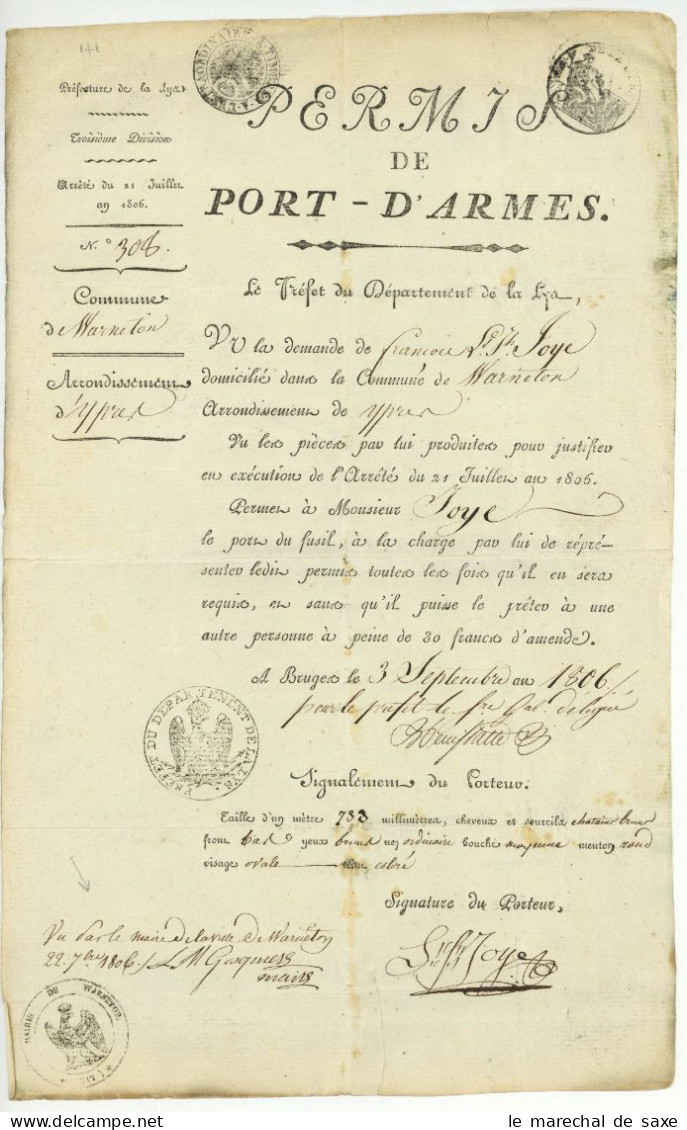 141
Préfecture de la Lys
Troisième Division
Arrêté du 21 Juillet
an 1806.
N.° 308.
Commune
de Warneton
Arrondissement
d'Ypres
PERMIS
DE
PORT - D'ARMES.
Le Préfet du Département de la Lys,
VU la demande de françois Joye
domicilié dans la Commune de Warneton
Arrondissement de ypres
Vu les pièces par lui produites pour justifier
en exécution de l'Arrêté du 21 Juillet an 1806.
Permet à Monsieur Joye
le port du fusil, à la charge par lui de répré-
senter ledit permis toutes les fois qu'il en sera
requis, et sans qu'il puisse le prêter à une
autre personne à peine de 30 francs d'amende.
A Bruges le 3 Septembre an 1806
pour le prefet le délégué
PREFET DU DEPARTEMENT DE LA LYS.
Signalement du Porteur.
Taille d'un mètre 733 millimètres, cheveux et sourcils chatains bruns
front bas yeux bruns nez ordinaire bouche moyenne menton rond
visage ovale coloré
Signature du Porteur,
Joye
Vu par le maire de la ville de Warneton
22. 7bre 1806.
maire
MAIRIE DE WARNETON
le marechal de saxe